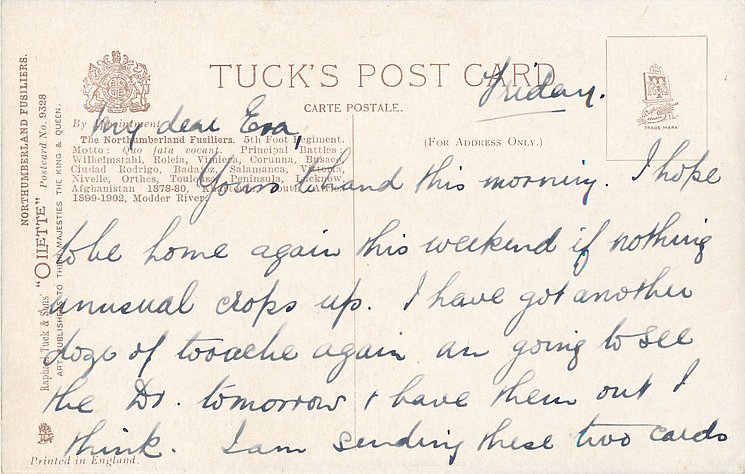 NORTHUMBERLAND FUSILIERS.
Raphael Tuck & Sons' "OILETTE" Postcard No. 9328
ART PUBLISHERS TO THEIR MAJESTIES THE KING & QUEEN.
TUCK'S POST CARD
CARTE POSTALE.
By Appointment
(FOR ADDRESS ONLY.)
TRADE MARK
The Northumberland Fusiliers. 5th Foot Regiment.
Motto: Quo fata vocant. Principal Battles
Wilhelmstahl, Roleia, Vimiera, Corunna, Busaco,
Ciudad Rodrigo, Badajoz, Salamanca, Vittoria,
Nivelle, Orthes, Toulouse, Peninsula, Lucknow,
Afghanistan 1878-80, Khartoum, South Africa
1899-1902, Modder River.
Printed in England.
Friday.
My dear Eva,
Yours to hand this morning. I hope
to be home again this weekend if nothing
unusual crops up. I have got another
doze of tooache again an going to see
the Dr. tomorrow + have them out I
think. I am sending these two cards